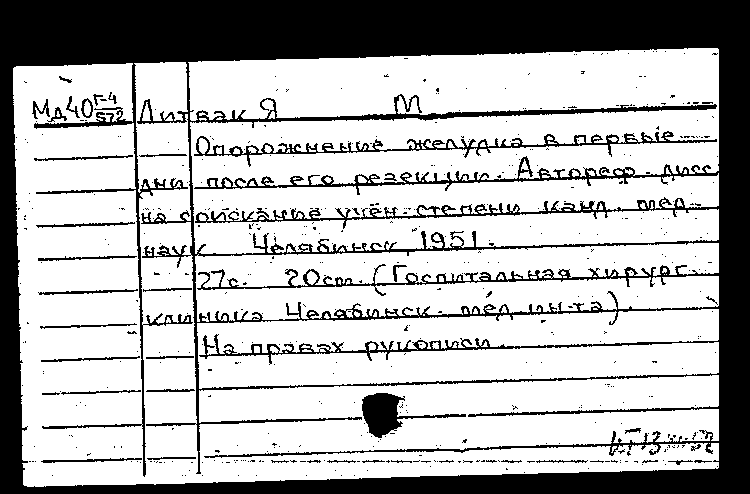 Мд40 Г-4/572 Литвак, Я М
Опорожнение желудка в первые
дни после его резекции. Автореф. дисс
на соискание учён. степени канд. мед.
наук Челябинск, 1951.
27с. 20см. (Госпитальная хирург.
клиника Челябинск. мед. ин-та).
На правах рукописи.